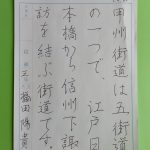 甲州街道は五街道
の一つで、江戸日
本橋から信州下諏
訪を結ぶ街道です。